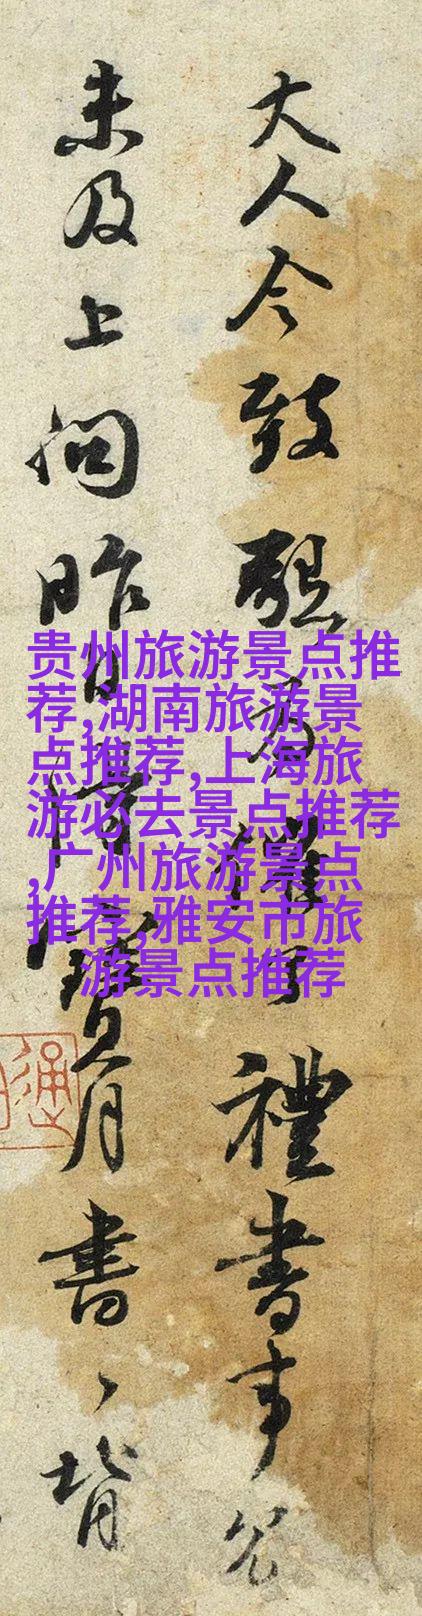 大人令致懇為催了禮書事冗
未及上問昨日得寶月書〻背
贵州旅游景点推
荐,湖南旅游景
点推荐,上海旅
游必去景点推荐
,广州旅游景点
推荐,雅安市旅
游景点推荐